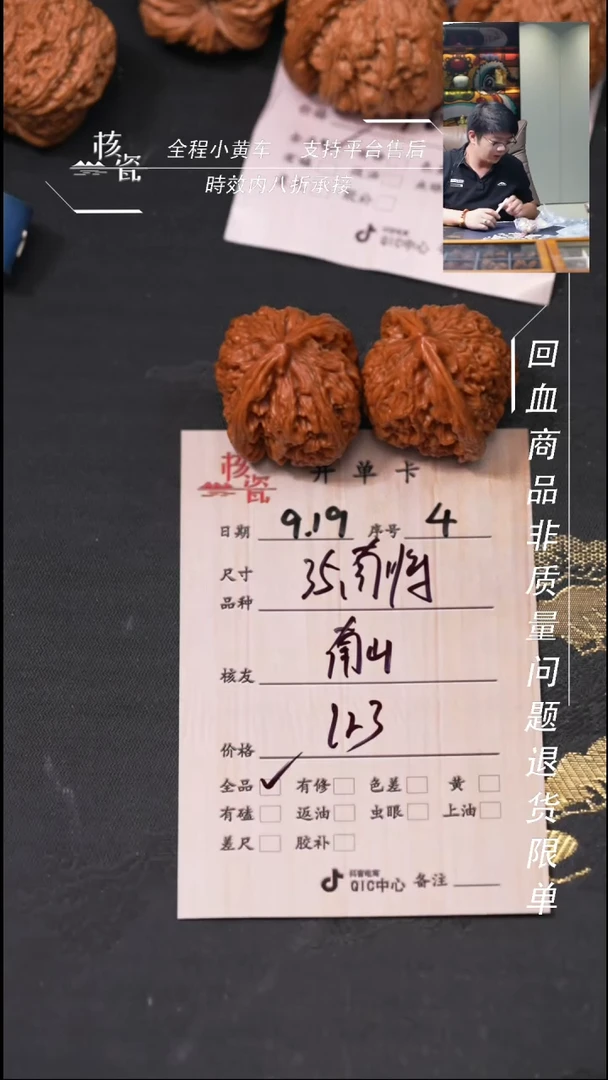 核瓷
全程小黄车 支持平台售后
時效内八折承接
QIC中心
回血商品非质量问题退货限单
核瓷
开单卡
日期 9.19 序号 4
尺寸
品种 35,南将
核友 南山
价格 123
全品 ✓ 有修 色差 黄
有磕 返油 虫眼 上油
差尺 胶补
抖音电商
QIC中心 备注